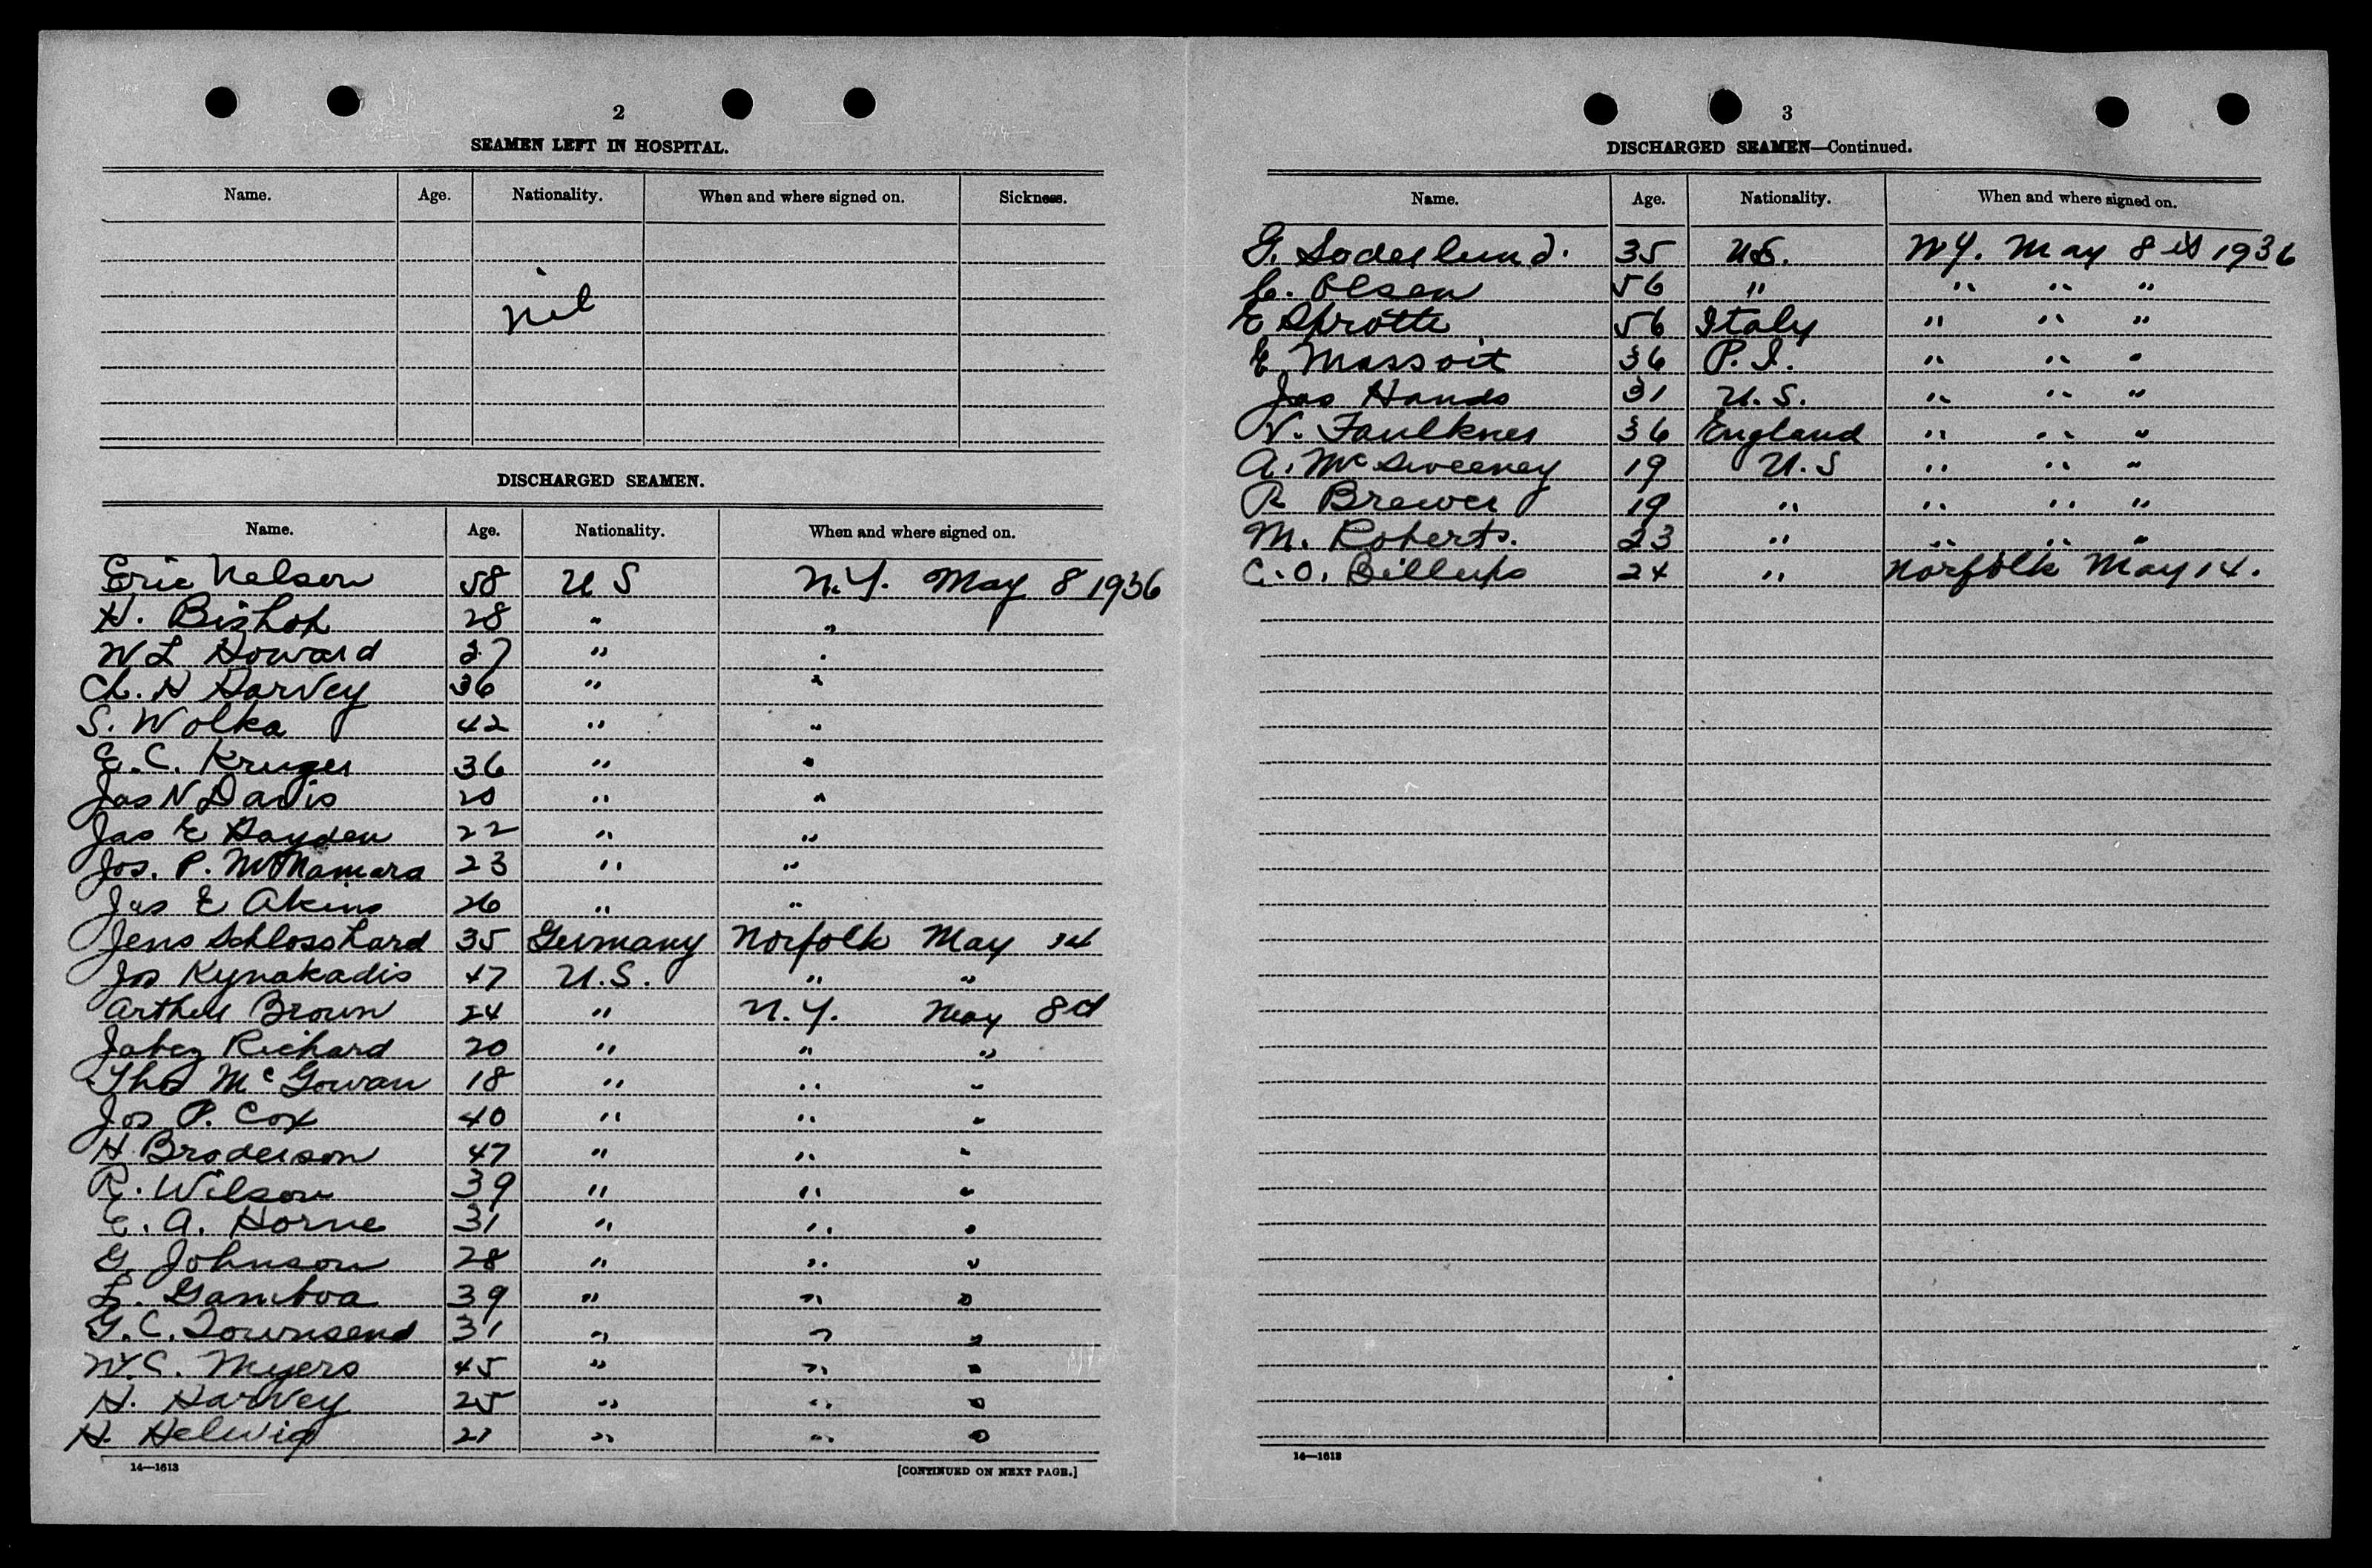 2
SEAMEN LEFT IN HOSPITAL.
Name. Age. Nationality. When and where signed on. Sickness.
nil
DISCHARGED SEAMEN.
Name. Age. Nationality. When and where signed on.
Eric Nelson 58 U S N.Y. May 8 1936
H. Bishop 28 " "
W L Howard 27 " "
Ch. H Harvey 36 " "
S. Wolka 42 " "
E. C. Kruger 36 " "
Jas N Davis 20 " "
Jas E Hayden 22 " "
Jos. P. McNamara 23 " "
Jas E Akins 26 " "
Jens Schlosshard 35 Germany Norfolk May 14
Jos Kynakadis 47 U.S. " "
Arthur Brown 24 " N.Y. May 8
Jabez Richard 20 " " "
Thos McGowan 18 " " "
Jos P. Cox 40 " " "
H Broderson 47 " " "
R. Wilson 39 " " "
E. A. Horne 31 " " "
G. Johnson 28 " " "
L. Gamboa 39 " " "
G. C. Townsend 31 " " "
W. C. Myers 45 " " "
H. Harvey 25 " " "
H. Helwig 21 " " "
14—1613 [CONTINUED ON NEXT PAGE.]
3
DISCHARGED SEAMEN—Continued.
Name. Age. Nationality. When and where signed on.
G. Soderlund. 35 U.S. N.Y. May 8 1936
C. Olsen 56 " " " "
E Sprotte 56 Italy " " "
E Massoit 36 P. I. " " "
Jas Hands 31 U. S. " " "
V. Faulkner 36 England " " "
A. McSweeney 19 U.S " " "
R Brewer 19 " " " "
M. Roberts. 23 " " " "
C. O. Billups 24 " Norfolk May 14.
14—1613